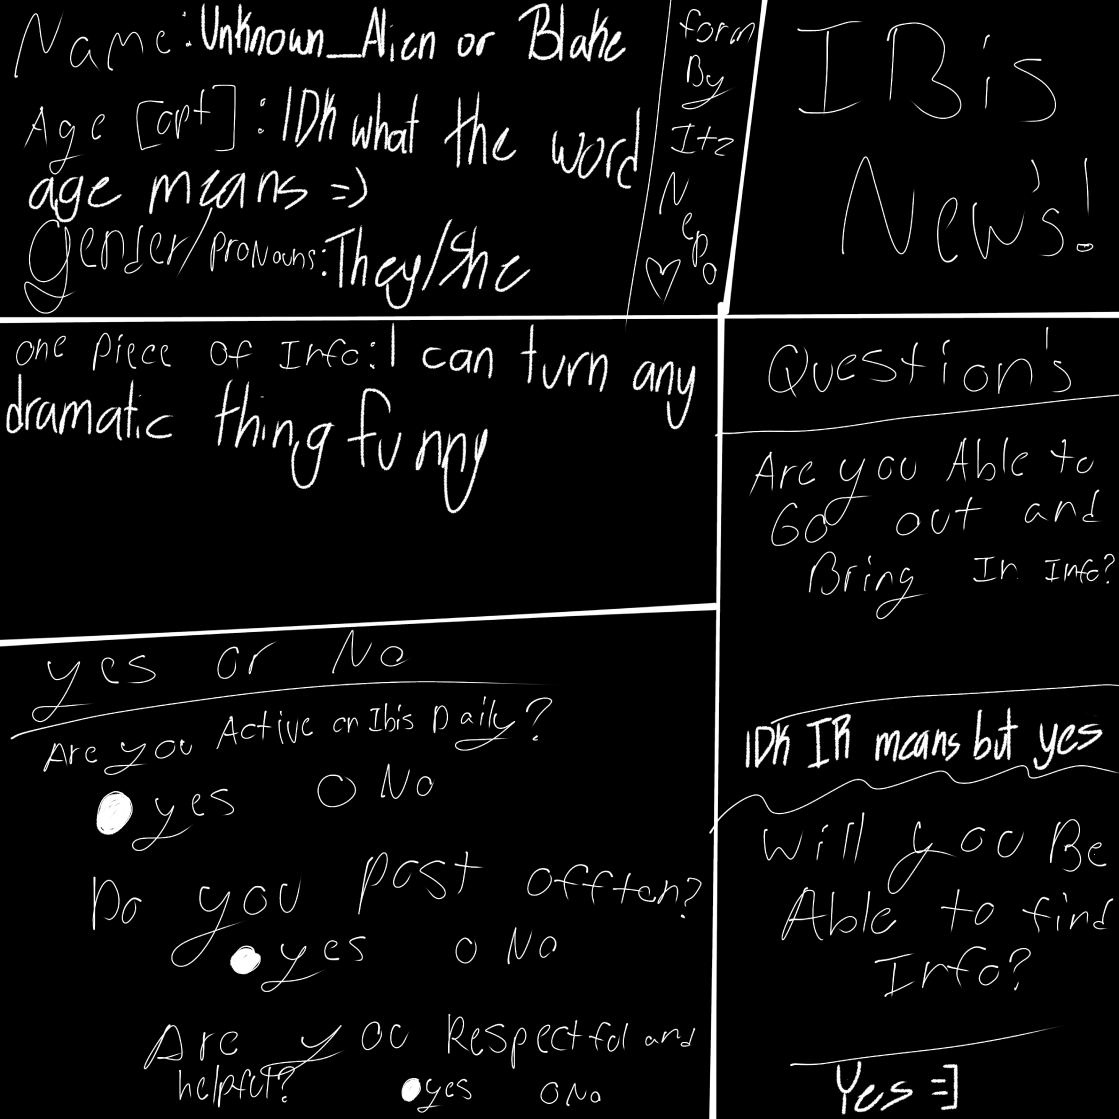 Name: Unknown_Alien or Blake
Age [opt]: IDK what the word
age means =)
Gender/Pronouns: They/She
form
By
Itz
Nepo
♡
IBis
New's!
one Piece of Info: I can turn any
dramatic thing funny
yes or No
Are you Active on Ibis Daily?
yes No
Do you post offten?
yes No
Are you Respectful and
helpful?
yes No
Question's
Are you Able to
Go out and
Bring In Info?
IDK IR means but yes
Will you Be
Able to find
Info?
Yes =]